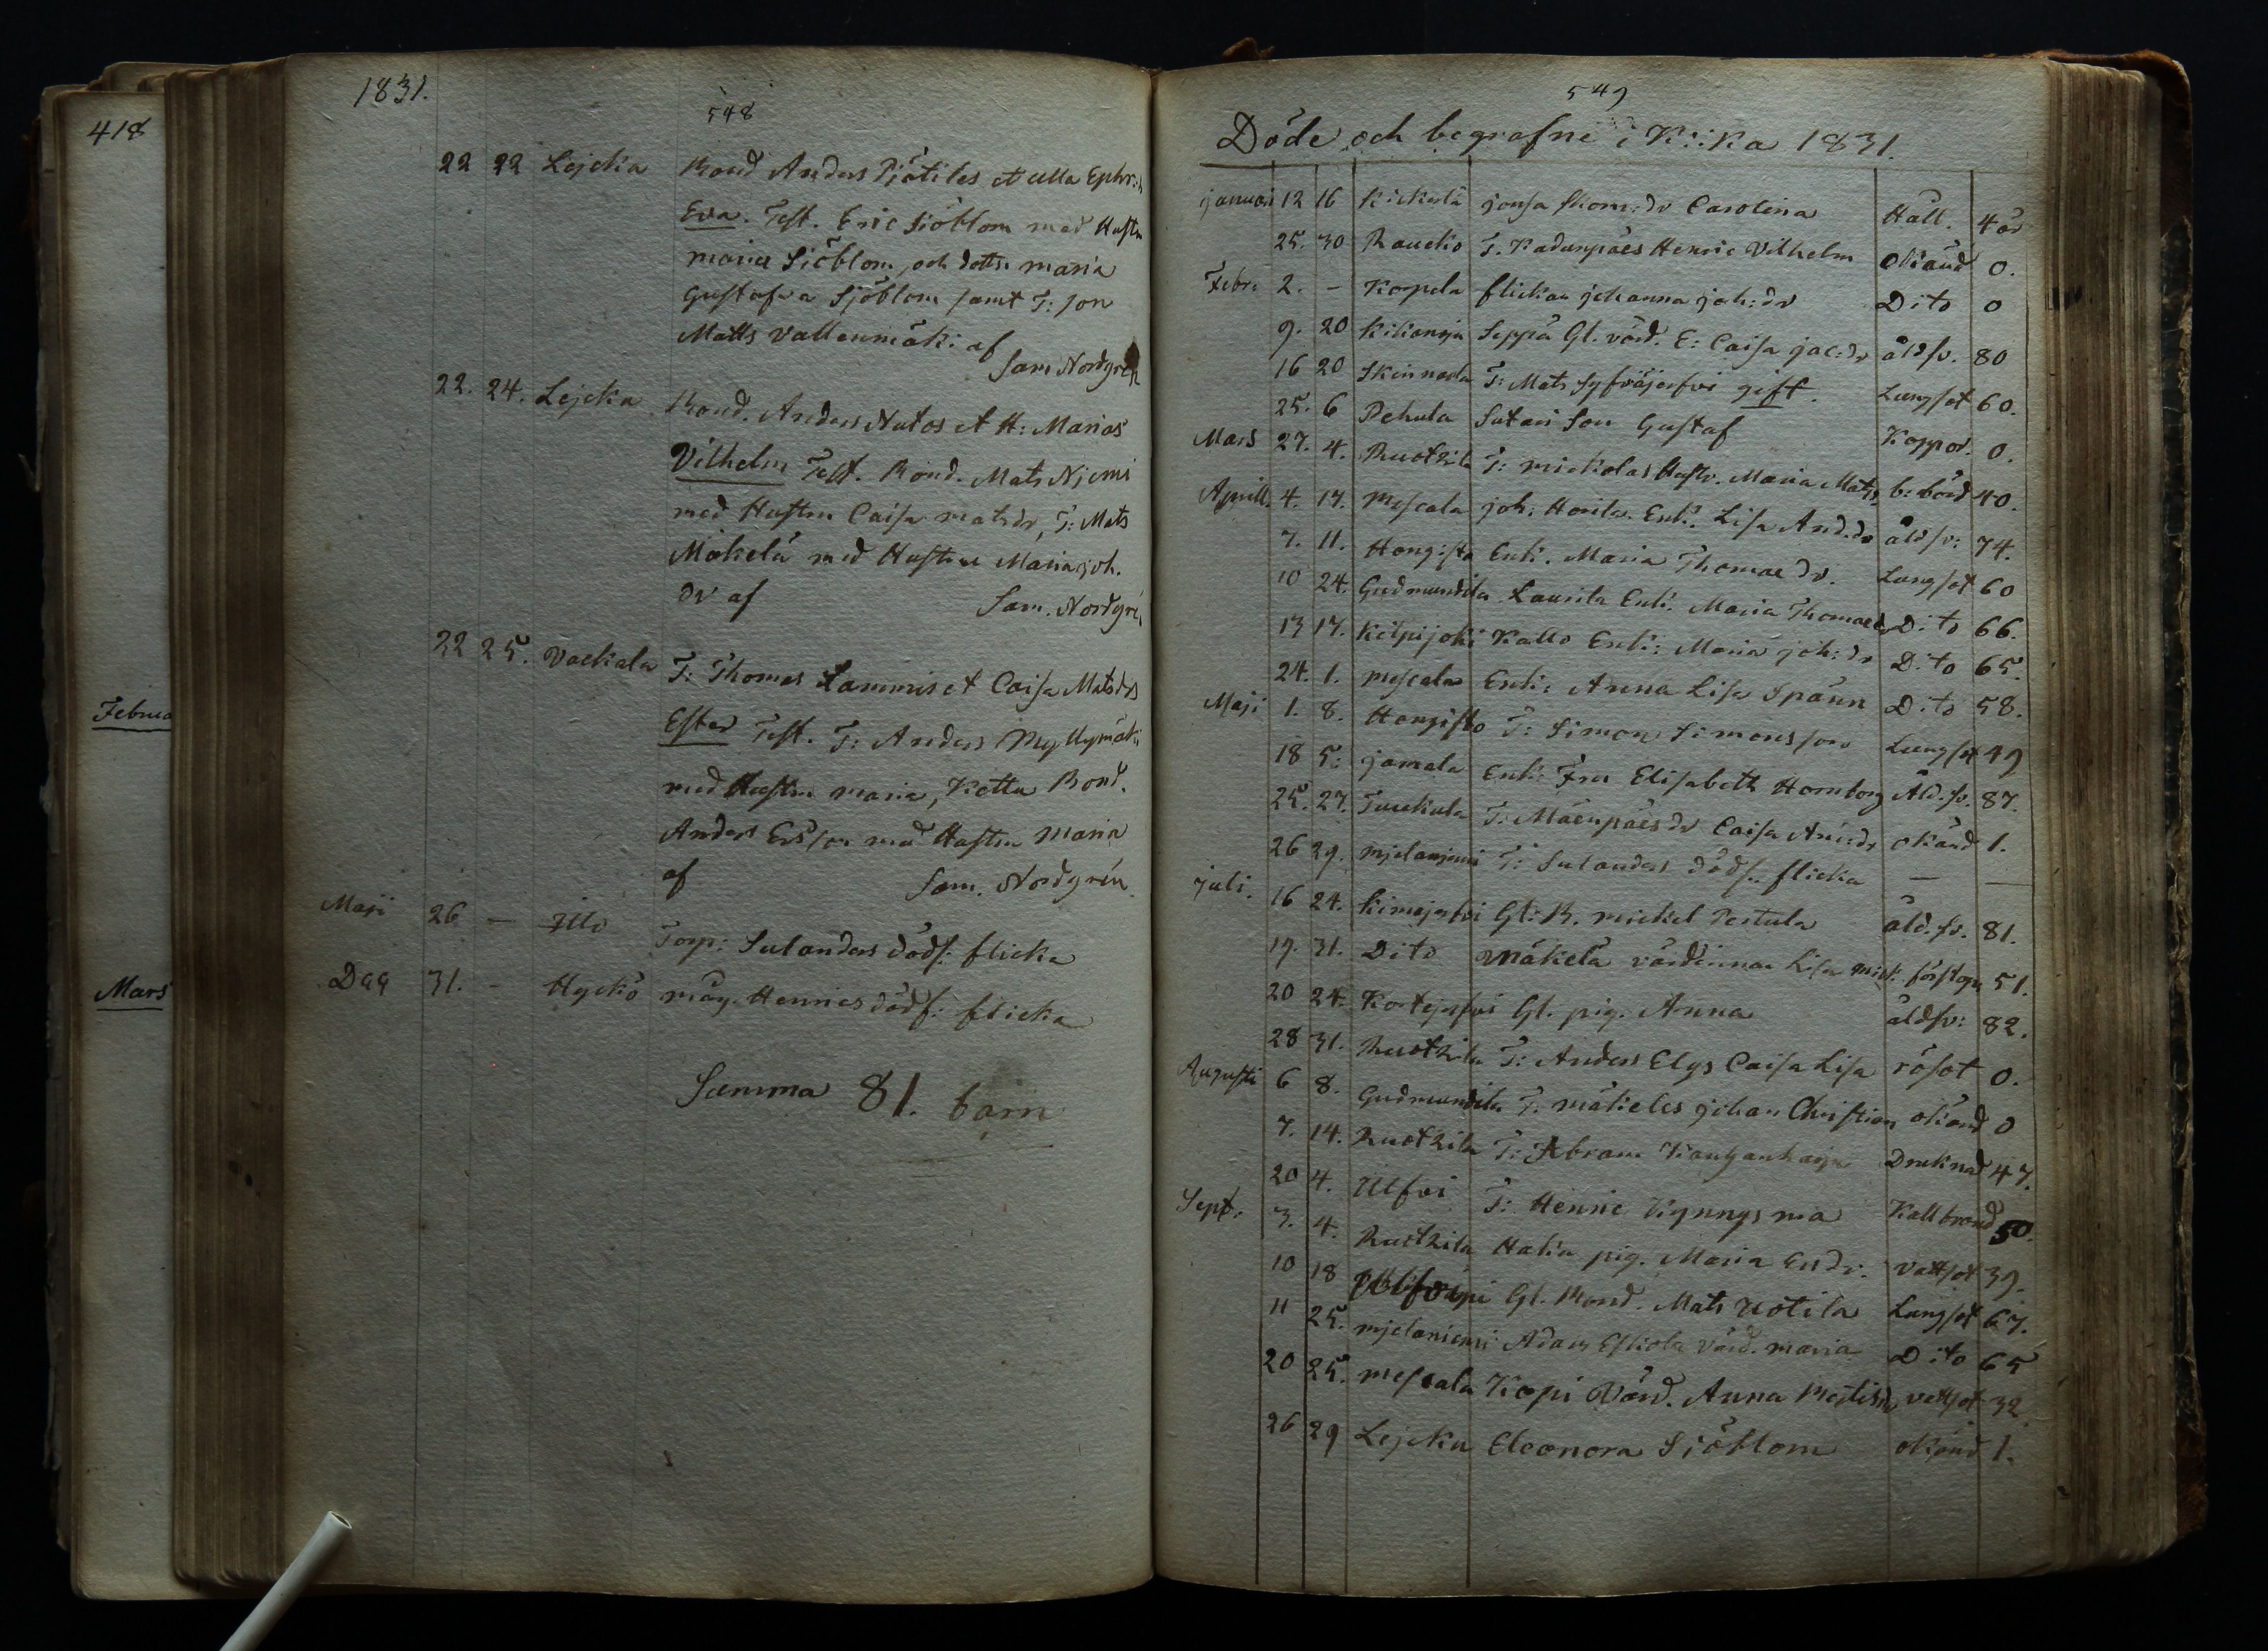 418
Februa
Mars
1831.
548
22 22 Lejcka Bond Anders Pjötiles et Ulla Ephr:
Eva. Test. Eric Siöblom med Hustru
maria Siöblom, och dottr maria
Gustafva Sjöblom samt T: son
Matts Vallenmäki af
Sam Nordgrén
22. 24. Lejcka Bond. Anders et H: Marias
Vilhelm Test. Bond. Mats Njemi
med Hustru Caisa matsdr, T: Mats
Mäkelä med Hustru Maria joh.
dr af Sam. Nordgrén
22 25. Vackala T: Thomas Lammis et Caisa Matsdrs
Ester Test. T: Anders Myllymäki
med Hustru maria, Kettu Bond.
Anders Ersson med Hustru Maria
af Sam. Nordgrén
Maji 26 — Torp: Sulanders dödf: flicka
Dec 31. - Hyckö Henrics dödf: flicka
Summa 81. barn
549
Döde och begrafne i K::ka 1831.
januari 12 16 Kickerla jonsa Carolina Håll. 4 år
25. 30 Raucko T. Kadunpäes Henric Vilhelm okänd 0.
Febr. 2. - Korpela flickan johanna joh: dr Dito 0
9. 20 Kikanoja Seppä Gl. värd. E: Caisa jac:dr åldsr. 80
16 20 Skinnarla T: Mats Syfväjerfvi gift. Lungsot 60.
25. 6 Pehula Sutari Son Gustaf Koppor. 0.
Mars 27. 4. Ruotzila T: mickolas Hustr. Maria Mats b: börd 40.
Aprill. 4. 17. Mescala joh: Enk. Lisa And.dr åldsr: 74.
7. 11. Hongisto Enk. Maria Thomae dr. Lungsot 60
10 24. Gudmundila Laurila Enk. Maria Thomaed Dito 66.
13 17. Kilpijoki Kallo Enk: Maria joh: dr Dito 65.
24. 1. mescala Enk: Anna Lisa Spänn Dito 58.
Maji 1. 8. Hongisto T: Simon Simonsson Lungsot 49
18 5: jamala Enk: Fru Elisabeth Hornborg Åld.sr. 87.
25. 27. Tuuckula T: Mäenpäes dr Caisa And:dr okänd 1.
26 29. mjelanjemi T: Sulanders dödf. flicka — —
juli. 16 24. Kimajerfvi Gl: B. mickel Pertula åld.sr. 81.
19. 31. Dito Mäkelä värdinnan Lisa mick: förstopn 51.
20 24. Kortejerfvi Gl. pig. Anna åldsr: 82.
28 31. Ruotzila T: Anders Elgs Caisa Lisa rösot 0.
Augusti 6 8. Gudmundila T. mäkeles johan Christian okänd 0
7. 14. Ruotzila T: Abram Druknad 47.
20 4. Ulfvi T: Henric Kynnysma Kallbrand 50.
Sept. 3. 4. Ruotzila Haka pig. Maria Er:dr. vattsot 39.
10 18 Gl. Bond. Mats Uotila Lungsot 67.
11 25. mjelaniemi Adam Eskola värd. maria Dito 65
20 25. mescala Kopi Värd. Anna vattsot 32.
26 29 Lejcka Eleonora Siöblom okänd 1.